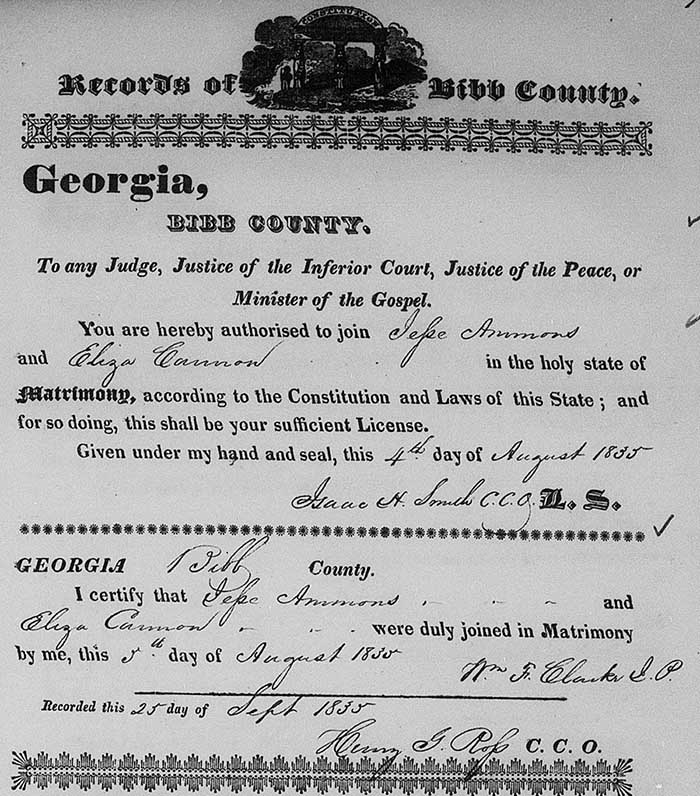 CONSTITUTION
Records of Bibb County.
Georgia,
BIBB COUNTY.
To any Judge, Justice of the Inferior Court, Justice of the Peace, or
Minister of the Gospel.
You are hereby authorised to join Jesse Ammons
and Eliza Cannon in the holy state of
Matrimony, according to the Constitution and Laws of this State; and
for so doing, this shall be your sufficient License.
Given under my hand and seal, this 4th day of August 1835
Isaac H. Smith C.C.O. L. S.
GEORGIA Bibb County.
I certify that Jesse Ammons and
Eliza Cannon were duly joined in Matrimony
by me, this 5th day of August 1835
Wm F. Clarke J.P.
Recorded this 25 day of Sept 1835
Henry G. Ross C. C. O.